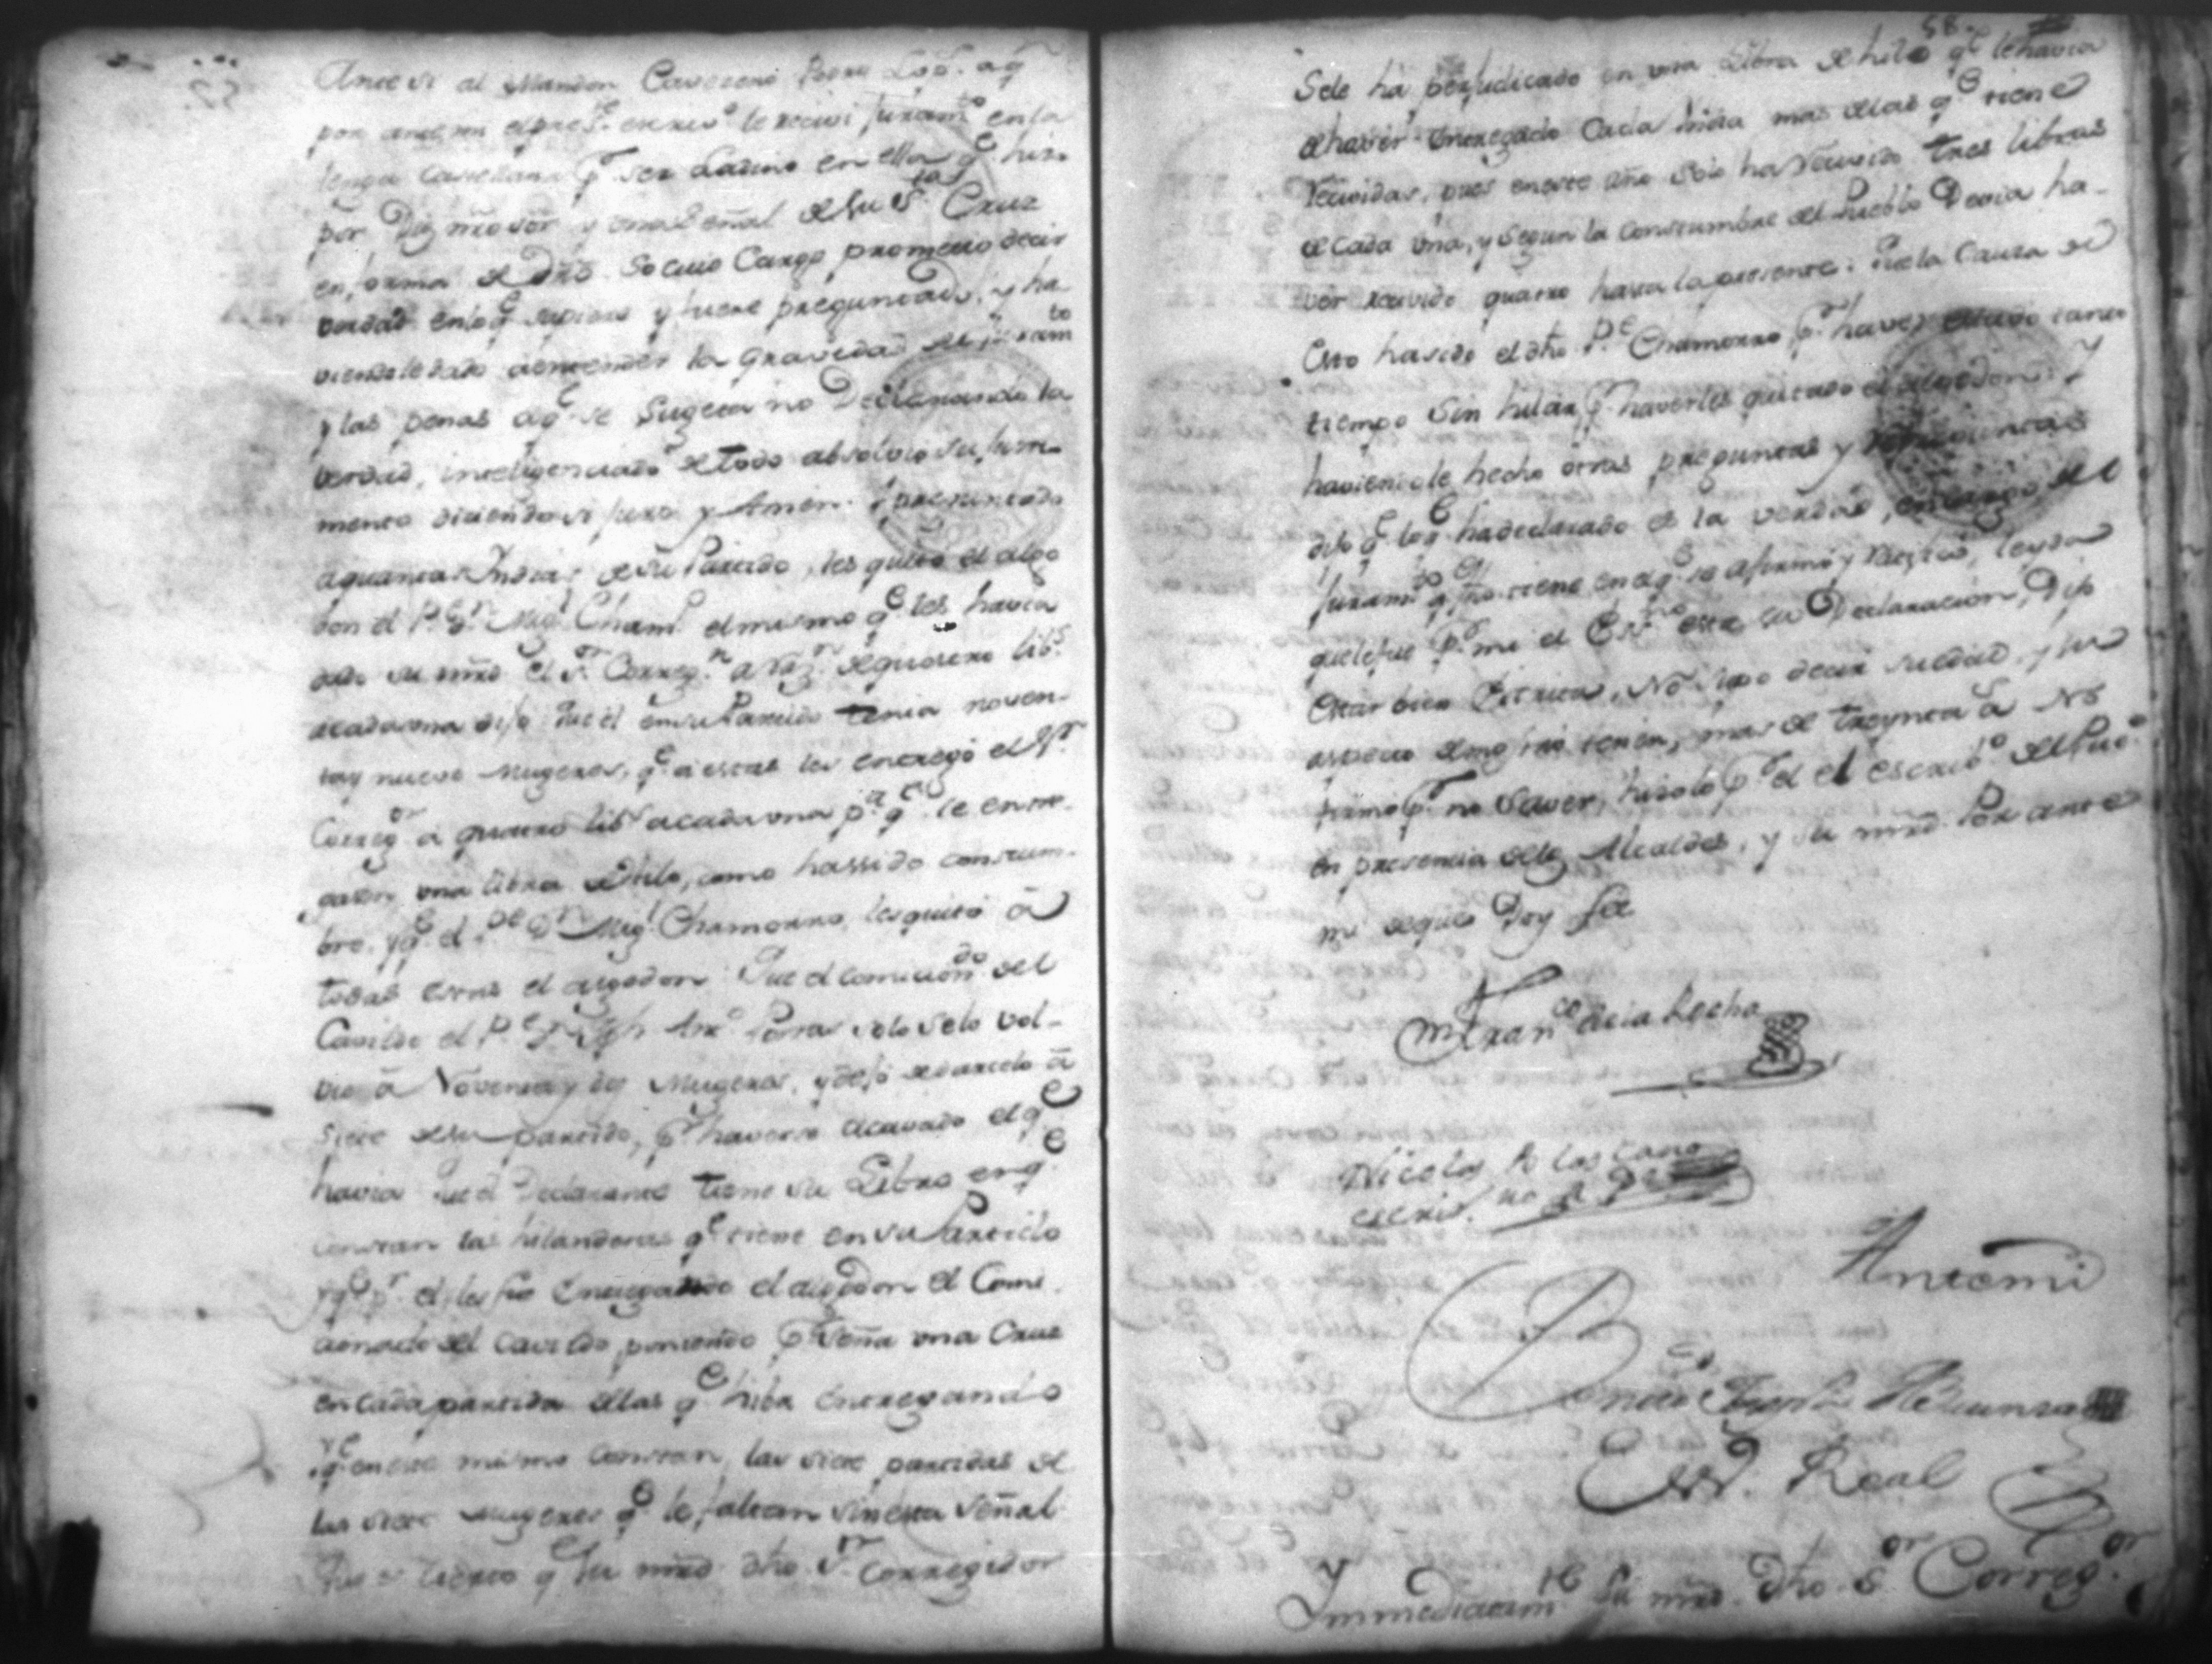 Ante si al Mandon Cavecero Pedro Lop.s a q.n
por ante mi el pres.te escriv.o le recivi juram.to en la
lengua castellana p.r ser Ladino en ella q.e hizo
por Dios nro señor y una Señal de su S.ta Cruz
en forma de dro. so cuio Cargo prometio decir
verdad en lo q.e supiere y fuere preguntado, y ha
viendole dado a entender la gravedad del juram.to
y las penas a q.e se sugeta no Declarando la
verdad, inteligenciado de todo absolvio su jura
mento diciendo si juro y Amen. preguntado
a quantas Indias de su Partido, les quitó el algo
don el P.e D.n Mig.l Cham.o el mismo q.e les havia
dado su mrd el S.r Correg.r a raz.n de quatro lib.s
a cada una dijo Que el en su Partido tenia noven-
ta y nueve mugeres, q.e a estas les entregó el S.r
Correg.or a quatro lib.s a cada una p.a q.e le entre
gasen una libra de hilo, como ha ssido constum-
bre, y q.e el P.e D.n Mig.l Chamorro, les quitó á
todas estas el algodon Que el comicion.do del
Cavildo el P.e D.n Jph Ant.o Porras solo se lo vol-
vio á Noventa y dos Mugeres, y dejó de darcelo á
siete de su partido, p.r haverse acavado el q.e
havia Que el Declarante tiene su Libro en q.e
constan las hilanderas q.e tiene en su Partido
y q.e p.r el les fue entregando el algodon el Comi
cionado del Cavildo poniendo p.r Seña una Cruz
en cada partida de las q.e hiba entregando
y q.e en este mismo constan, las siete partidas de
las siete mugeres q.e le faltan sin esta señal
Que es cierto q.e su mrd. dho S.r Corregidor
58
Se le ha perjudicado en una Libra de hilo q.e le havia
de haver entregado Cada India mas de las q.e tiene
recividas, pues en este año solo ha recivido tres libras
de cada una, y segun la constumbre del Pueblo Devia ha-
ver recivido quatro hasta la presente: Que la Causa de
Esto ha sido el dho P.e Chamorro p.r haver estado tanto
tiempo sin hilar, p.r haverles quitado el algodon: Y
haviendole hecho otras preguntas y repreguntas
dijo q.e lo q.e ha declarado es la verdad, en cargo del
juram.to q.e fho tiene en el q.e se afirmó y ratificó, leyda
que le fue p.r mi el Es.no esta su Declaracion, Dijo
Estar bien Escrita, No supo decir su edad, y su
aspecto demostró tener, mas de treynta a.s No
firmó p.r no saver, hisolo p.r el el escrib.o del Pue.o
en presencia de los Alcaldes, y su mrd. Por ante
mi de que Doy fee
Fran.co de la Rocha
Nicolas
escriv.no
Ante mi
Es.no Real
Immediatam.te Su mrd. Dho S.or Correg.or